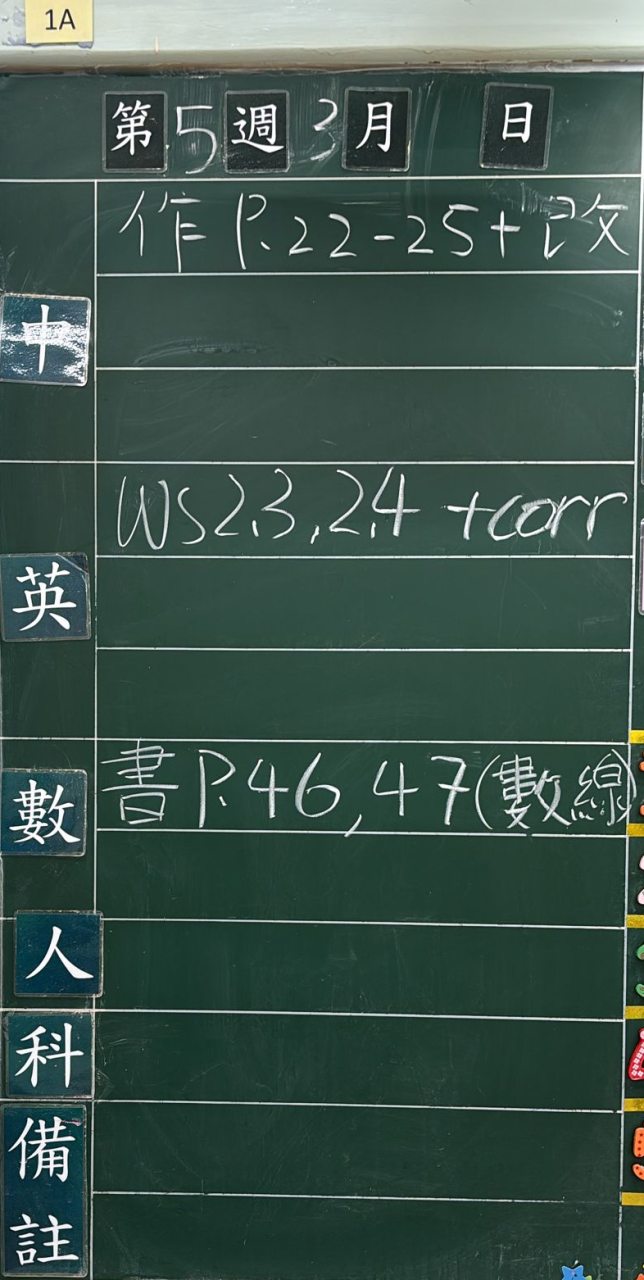 1A
第5週3月 日
作 P.22-25+改
中
WS2.3,2.4 +corr
英
書P.46,47(數線)
數
人
科
備
註